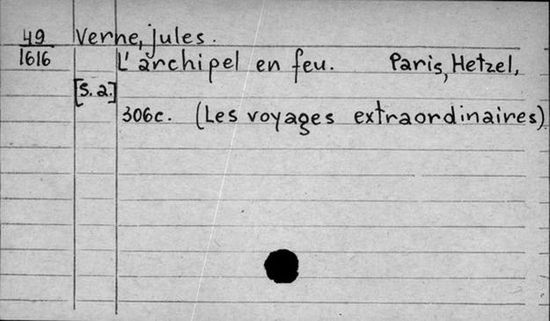 49 Verne, jules.
1616 L'archipel en feu. Paris, Hetzel,
[s.a.]
306c. (Les voyages extraordinaires)